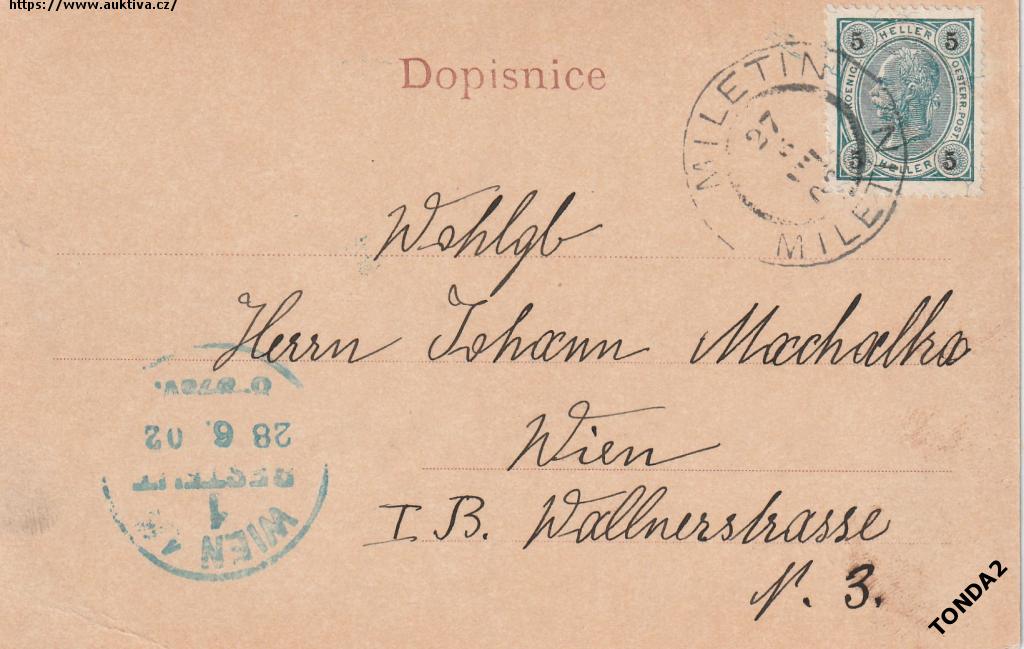 https://www.auktiva.cz/
Dopisnice
5 HELLER 5
KOENIG OESTERR. POST.
5 HELLER 5
MILETIN
27
MILETIN
Wohlgb
Herrn Johann Machalka
Wien
I B. Wallnerstrasse
N. 3.
WIEN 1
1
BESTELLT
28 6. 02
TONDA2